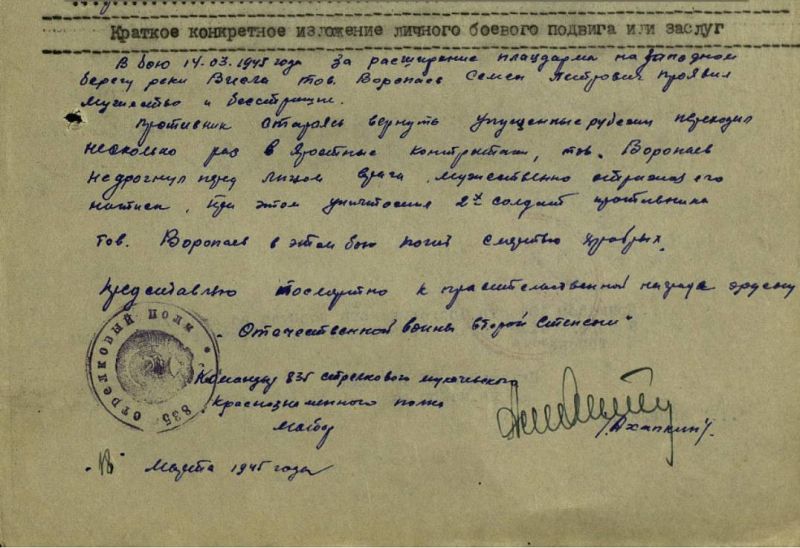 Краткое конкретное изложение личного боевого подвига или заслуг
В бою 14.03.1945 года за расширение плацдарма на западном
берегу реки Висла тов. Воропаев Семен Петрович проявил
мужество и бесстрашие.
Противник стараясь вернуть упущенные рубежи переходил
несколько раз в яростные контратаки, тов. Воропаев
не дрогнул перед лицом врага, мужественно отражал его
натиск, при этом уничтожил 2х солдат противника
тов. Воропаев в этом бою погиб смертью храбрых.
Представляю посмертно к правительственной награде ордену
"Отечественной войны второй степени"
835 СТРЕЛКОВЫЙ ПОЛК
Командир 835 стрелкового
Краснознаменного полка
Майор
/Ахапкин/.
"18" Марта 1945 года